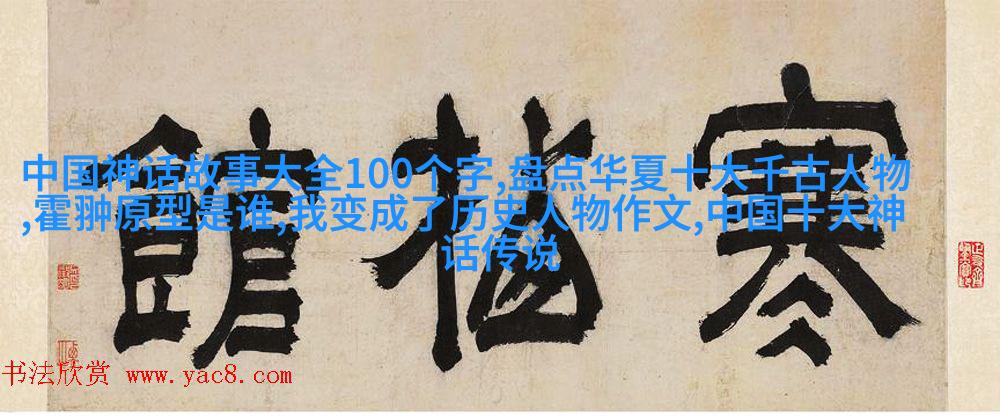 寒梅館
中国神话故事大全100个字,盘点华夏十大千古人物
,霍翀原型是谁,我变成了历史人物作文,中国十大神
话传说
书法欣赏 www.yac8.com